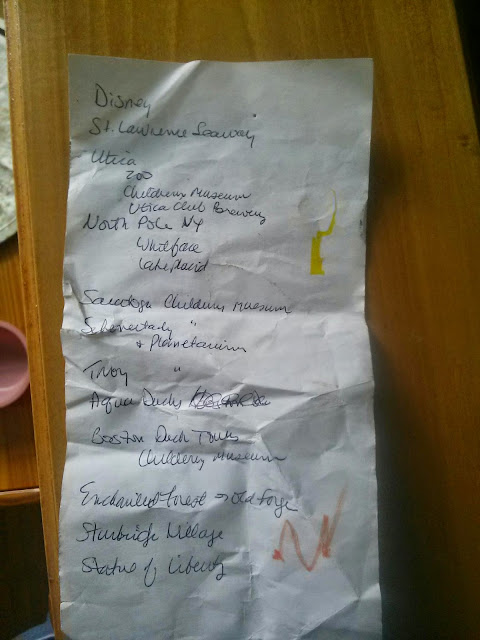 Disney
St. Lawrence Seaway
Utica
Zoo
Childrens Museum
Utica Club Brewery
North Pole NY
Whiteface
Lake placid
Saratoga Childrens museum
Schenectady "
+ Planetarium
Troy "
Aqua Ducks
Boston Duck Tours
Childrens Museum
Enchanted forest → old forge
Sturbridge Village
Statue of Liberty